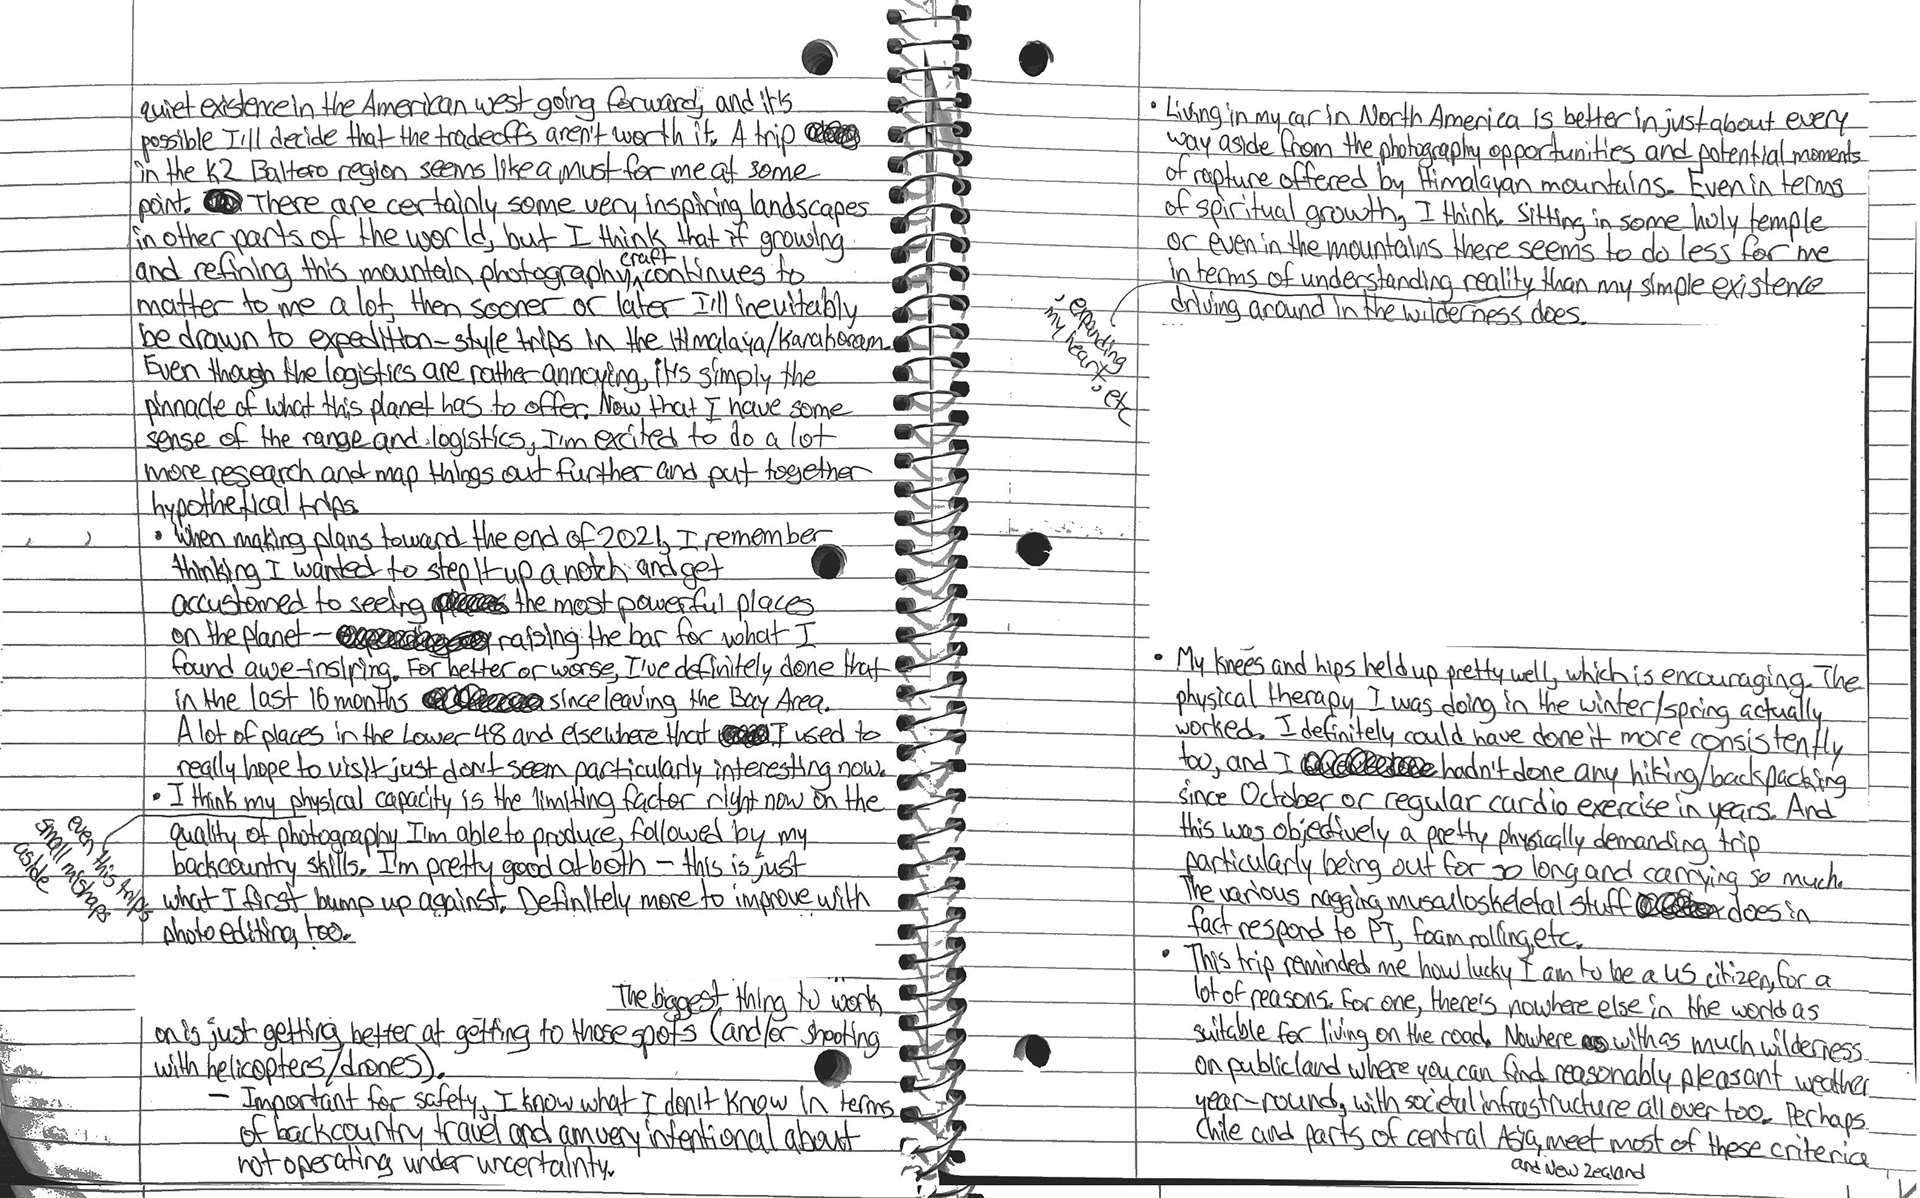 quiet existence in the American west going forward, and it's
possible I'll decide that the tradeoffs aren't worth it. A trip
in the K2 Baltoro region seems like a must for me at some
point. There are certainly some very inspiring landscapes
in other parts of the world, but I think that if growing
and refining this mountain photography craft continues to
matter to me a lot, then sooner or later I'll inevitably
be drawn to expedition-style trips in the Himalaya/Karakoram.
Even though the logistics are rather annoying, it's simply the
pinnacle of what this planet has to offer. Now that I have some
sense of the range and logistics, I'm excited to do a lot
more research and map things out further and put together
hypothetical trips.
• When making plans toward the end of 2021, I remember
thinking I wanted to step it up a notch and get
accustomed to seeing the most powerful places
on the planet - raising the bar for what I
found awe-insipring. For better or worse, I've definitely done that
in the last 16 months since leaving the Bay Area.
A lot of places in the Lower 48 and elsewhere that I used to
really hope to visit just don't seem particularly interesting now.
• I think my physical capacity is the limiting factor right now on the
quality of photography I'm able to produce, followed by my
backcountry skills. I'm pretty good at both - this is just
what I first bump up against. Definitely more to improve with
photo editing, too.
even this trips
small mishaps
aside
The biggest thing to work
on is just getting better at getting to those spots (and/or shooting
with helicopters/drones).
- Important for safety, I know what I don't know in terms
of backcountry travel and am very intentional about
not operating under uncertainty.
• Living in my car in North America is better in just about every
way aside from the photography opportunities and potential moments
of rapture offered by Himalayan mountains. Even in terms
of spiritual growth, I think. Sitting in some holy temple
or even in the mountains there seems to do less for me
in terms of understanding reality than my simple existence
driving around in the wilderness does.
, expanding
my heart, etc
• My knees and hips held up pretty well, which is encouraging. The
physical therapy I was doing in the winter/spring actually
worked. I definitely could have done it more consistently
too, and I hadn't done any hiking/backpacking
since October or regular cardio exercise in years. And
this was objectively a pretty physically demanding trip
particularly being out for so long and carrying so much.
The various nagging musculoskeletal stuff does in
fact respond to PT, foam rolling, etc.
• This trip reminded me how lucky I am to be a US citizen, for a
lot of reasons. For one, there's nowhere else in the world as
suitable for living on the road. Nowhere with as much wilderness
on public land where you can find reasonably pleasant weather
year-round, with societal infrastructure all over too. Perhaps
Chile and parts of central Asia, meet most of these criteria
and New Zealand